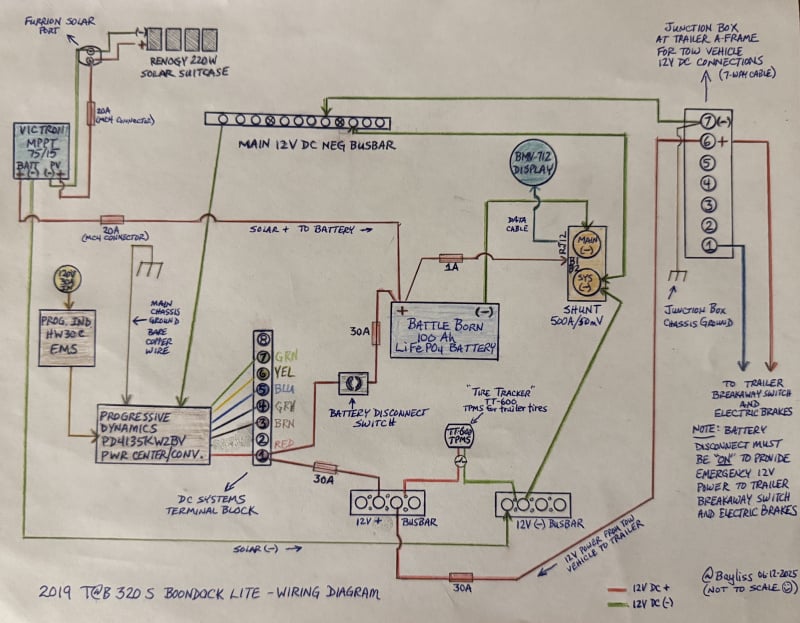 FURRION SOLAR
PORT
(-)
+
RENOGY 220W
SOLAR SUITCASE
20A
(MC4 CONNECTOR)
VICTRON
MPPT
75/15
BATT PV
+ (-) (-) +
MAIN 12V DC NEG BUSBAR
JUNCTION BOX
AT TRAILER A-FRAME
FOR TOW VEHICLE
12V DC CONNECTIONS
(7-WAY CABLE)
7 (-)
6 +
5
4
3
2
1
BMV-712
DISPLAY
DATA
CABLE
RJ12
B1
B2
MAIN
(-)
SYS
(-)
SHUNT
500A/50mV
20A
(MC4 CONNECTOR)
SOLAR + TO BATTERY →
1A
MAIN
CHASSIS
GROUND
BARE
COPPER
WIRE
30A
+ (-)
BATTLE BORN
100 Ah
LiFePO4 BATTERY
JUNCTION BOX
CHASSIS GROUND
120V
PROG. IND
HW30C
EMS
8
7 GRN
6 YEL
5 BLU
4 GRY
3 BRN
2
1 RED
BATTERY DISCONNECT
SWITCH
"TIRE TRACKER"
TT-600
TPMS for trailer tires
TT-600
TPMS
PROGRESSIVE
DYNAMICS
PD4135KW2BV
PWR CENTER/CONV.
DC SYSTEMS
TERMINAL BLOCK
30A
12V + BUSBAR
12V (-) BUSBAR
TO TRAILER
BREAKAWAY SWITCH
AND
ELECTRIC BRAKES
NOTE: BATTERY
DISCONNECT MUST
BE "ON" TO PROVIDE
EMERGENCY 12V
POWER TO TRAILER
BREAKAWAY SWITCH
AND ELECTRIC BRAKES
SOLAR (-) →
12V POWER FROM TOW
VEHICLE TO TRAILER
30A
2019 T@B 320 S BOONDOCK LITE - WIRING DIAGRAM
12V DC +
12V DC (-)
@Bayliss 06-12-2025
(NOT TO SCALE ☺)